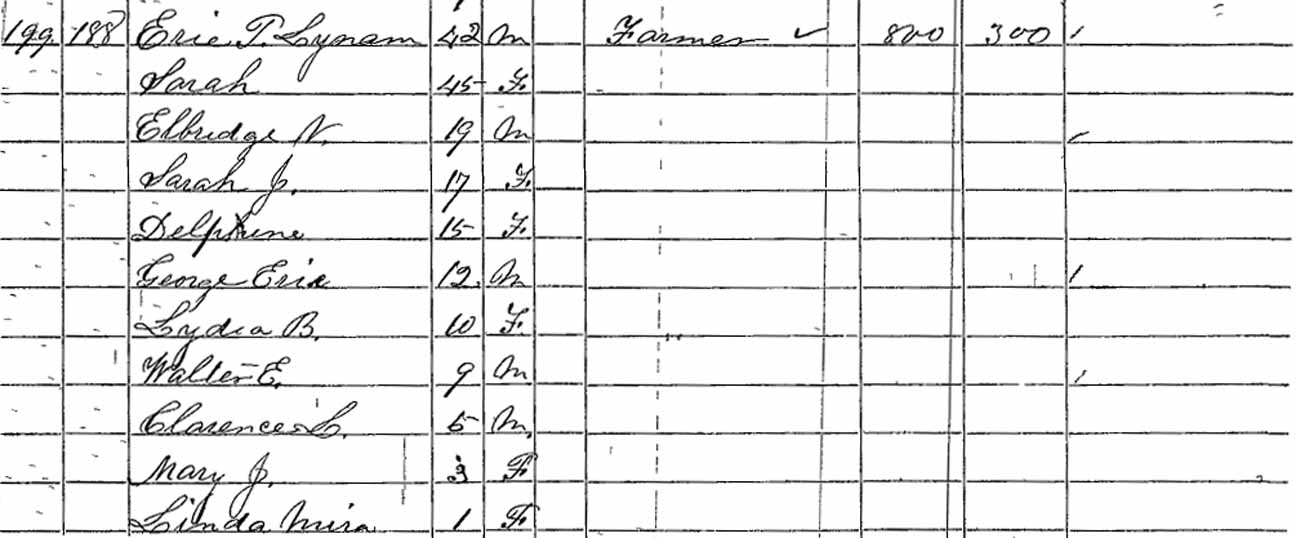 199 188 Eric T. Lynam 42 M Farmer ✓ 800 300 /
Sarah 45 F.
Elbridge N. 19 M
Sarah J. 17 F.
Delphine 15 F.
George Eric 12. M /
Lydia B. 10 F.
Walter E. 9 M /
Clarence L. 5 M.
Mary J. 3 F
Linda Mira 1 F